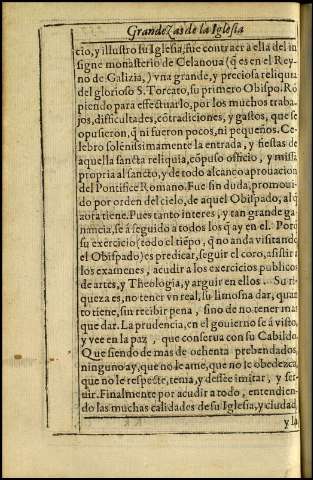 Grandezas de la Iglesia
cio, y illustro su Iglesia, fue contraer a ella del in
signe monasterio de Celanoua (q̃ es en el Rey-
no de Galizia,) vna grande, y preciosa reliquia
del glorioso S. Torcato, su primero Obispo. Rõ
piendo para effectuarlo, por los muchos traba-
jos, difficultades, cõtradiciones, y gastos, que se
opusieron, q̃ ni fueron pocos, ni pequeños. Ce-
lebro solenissimamente la entrada, y fiestas de
aquella sancta reliquia, cõpuso officio, y missa
propria al sancto, y de todo alcanço aprouacion
del Pontifice Romano. Fue sin duda, promoui-
do por orden del cielo, de aquel Obispado, al q̃
aora tiene. Pues tanto interes, y tan grande ga-
nancia, se à seguido a todos los q̃ ay en el. Porq̃
su exercicio (todo el tiẽpo, q̃ no anda visitando
el Obispado) es predicar, seguir el coro, assistir a
los examenes, acudir a los exercicios publicos
de artes, y Theologia, y arguir en ellos. Su ri-
queza es, no tener vn real, su limosna dar, quan
to tiene, sin recibir pena, sino de no tener mas
que dar. La prudencia, en el gouierno se à visto,
y vee en la paz, que conserua con su Cabildo.
Que siendo de mas de ochenta prebendados,
ninguno ay, que no le ame, que no le obedezca,
que no le respecte, tema, y dessee imitar, y ser-
uir. Finalmente por acudir a todo, entendien-
do las muchas calidades de su Iglesia, y ciudad,
y la